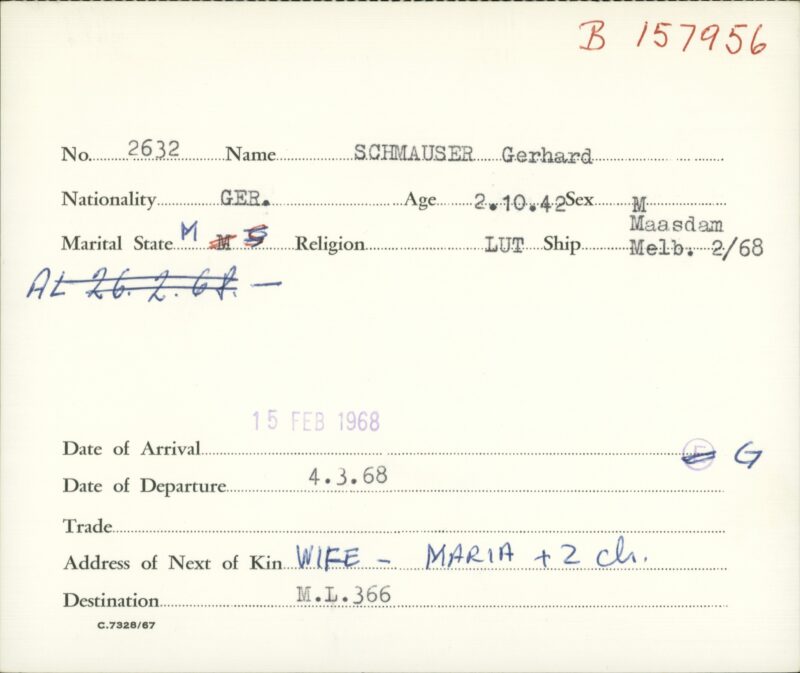 B 157956
No. 2632 Name SCHMAUSER Gerhard
Nationality GER. Age 2.10.42 Sex M
Maasdam
Marital State M M S Religion LUT Ship Melb. 2/68
AL 26.2.68. —
15 FEB 1968
Date of Arrival E G
Date of Departure 4.3.68
Trade
Address of Next of Kin WIFE – MARIA + 2 ch.
Destination M.L.366
C.7328/67